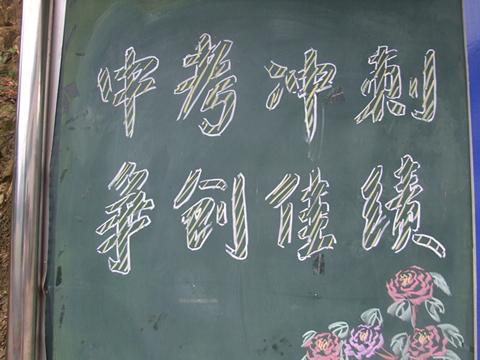 中考冲刺
争创佳绩